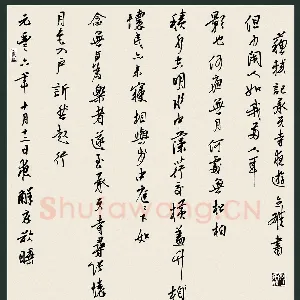 元豐六年十月十二日夜解衣欲睡
月色入戶欣然起行
念無與樂者遂至承天寺尋張懷
懷民亦未寢相與步中庭下如
積水空明水中藻荇交橫蓋竹柏
影也何夜無月何處無竹柏
但少閑人如我兩人耳
蘇軾記承天寺夜遊 書
Shufawang.CN